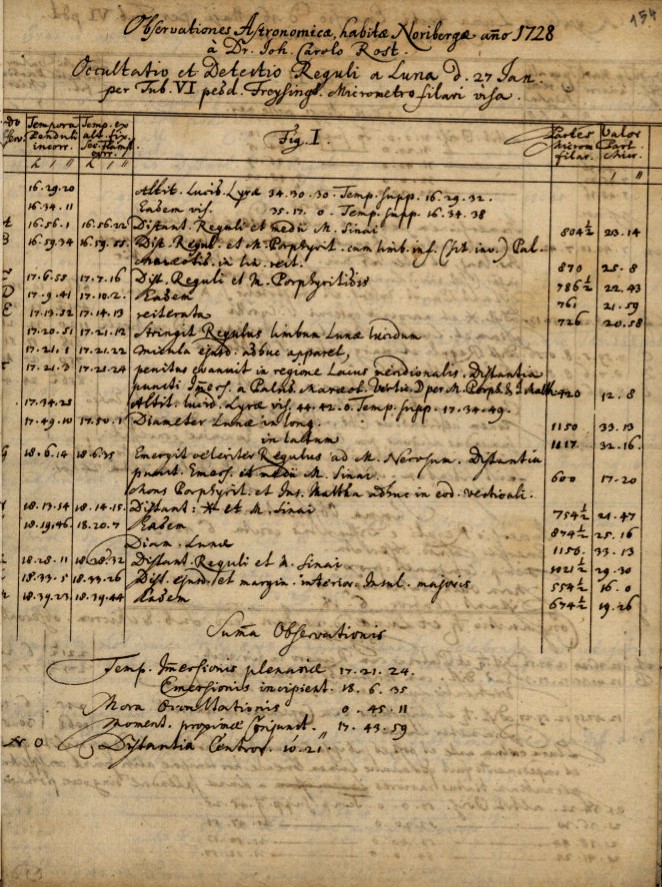 154
Observationes Astronomicæ, habitæ Noribergæ año 1728
à Dr. Joh. Carolo Rost.
Occultatio et Detectio Reguli a Luna d. 27 Jan.
per Tub. VI ped. Micrometro filari visa.
Tempora Penduli incorr. Temp. ex alt. fix. corr. Fig. I. Partes Microm filar. Valor Part Micr.
16.29.20 Altit. Lucid. Lyræ 34.30.30. Temp. supp. 16.29.32.
16.34.11 Eadem vis. 35.17.0. Temp. supp. 16.34.38
A 16.56.1 16.56.22 Distant. Reguli et medii M. Sinai 804½ 23.14
B 16.59.34 Dist. Regul. et M. Porphyrit. cum limb. inf. (sit. inv.) Pal.
Maræotis in lin. rect. 870 25.8
17.6.55 17.7.16 Dist. Reguli et M. Porphyritidis 786½ 22.43
D 17.9.41 17.10.2. Eadem 761 21.59
E 17.13.52 17.14.13 reiterata 726 20.58
17.20.51 17.21.12 Stringit Regulus limbum Lunæ lucidum
17.21.1 17.21.22 adhuc apparet,
17.21.3 17.21.24 penitus evanuit in regione Lacus meridionalis. Distantia
puncti Imers. a Palud. Maræot. Vertic. D per M. Porph. & I. Malth 420 12.8
17.34.28 Altit. lucid. Lyræ vis. 44.42.0. Temp. supp. 17.34.49.
17.49.10 17.50.1 Diameter Lunæ in long. 1150 33.13
in latum 1117 32.16
G 18.6.14 18.6.35 Emergit celeriter Regulus ad M. Nerosum. Distantia
punct. Emers. et medii M. Sinai. 600 17.20
Mons Porphyrit. et Ins. Maltha adhuc in eod. verticali.
18.13.54 18.14.15 Distant: * et M. Sinai 754½ 21.47
18.19.46. 18.20.7 Eadem 874½ 25.16
Diam. Lunæ 1150 33.13
18.28.11 18.28.32 Distant. Reguli et M. Sinai. 1021½ 29.30
18.33.5 18.33.26 Dist. ejusd. et margin. interior. Insul. majoris 554½ 16.0
18.39.23 18.39.44 Eadem 674½ 19.26
Suma Observationis
Temp. Imersionis plenariæ 17.21.24.
Emersionis incipient. 18.6.35
Mora Occultationis 0.45.11
Moment. proximæ Conjunct. 17.43.59
Distantia Centror. 10.21".